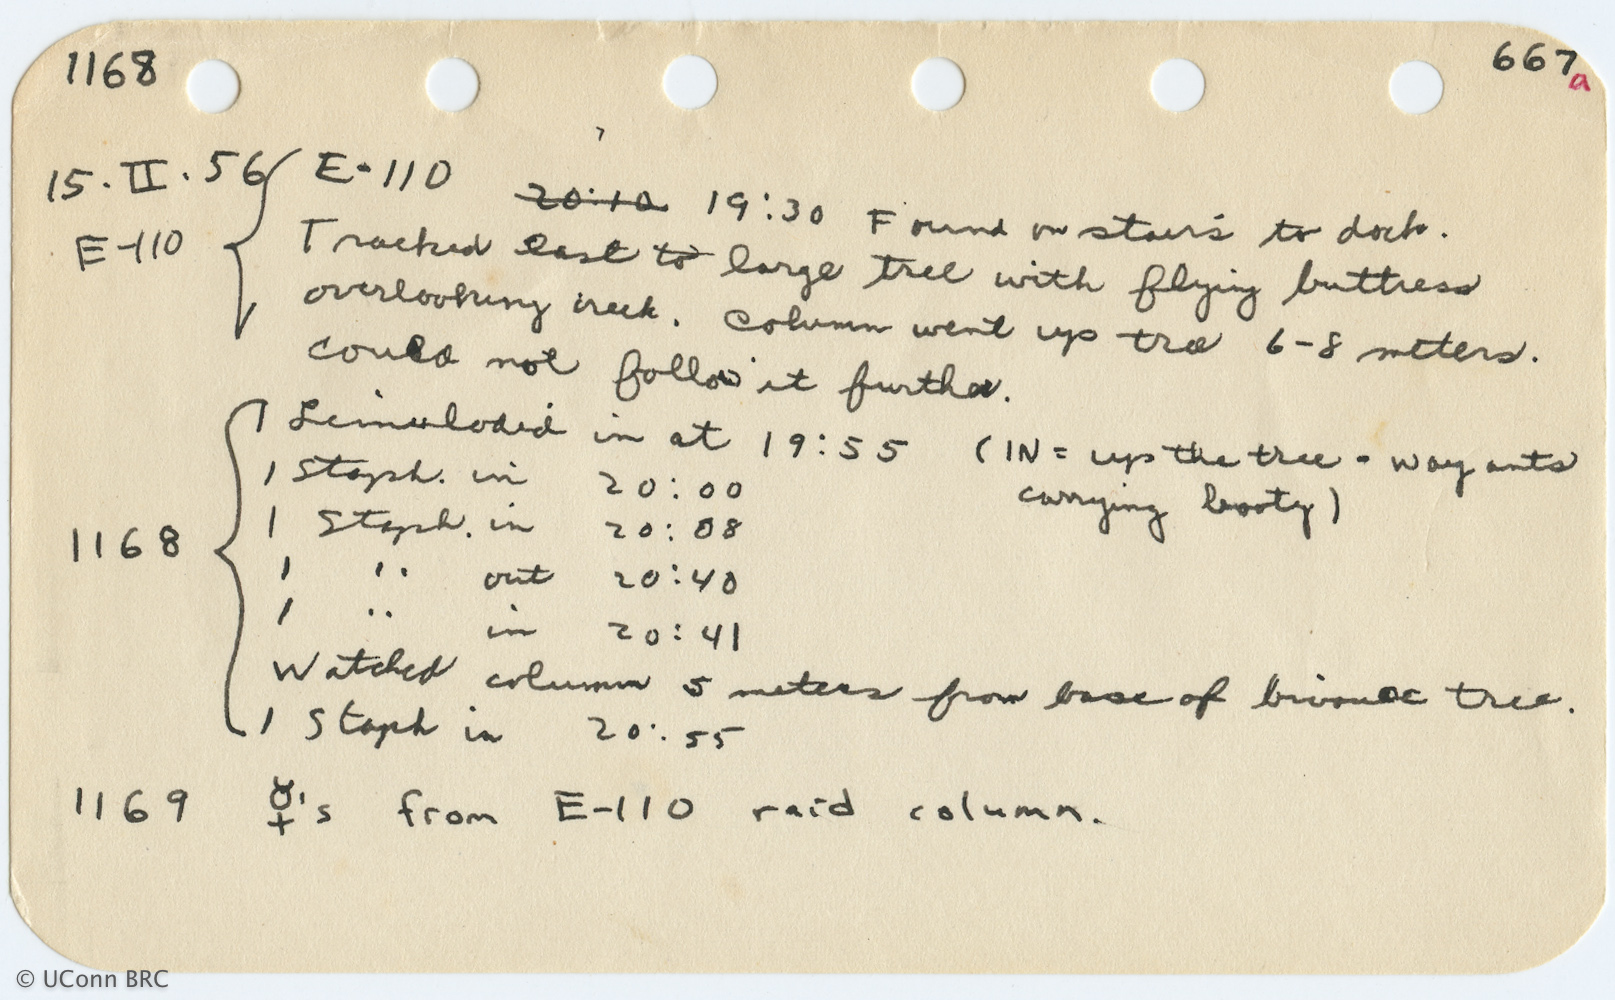 1168 667a
15.II.56 E-110
20:10 19:30 Found on stairs to dock.
E-110 Tracked east to large tree with flying buttress
overlooking creek. Column went up tree 6-8 meters.
Could not follow it further.
1 Limulodid in at 19:55 (IN = up the tree - way ants
carrying booty)
1 Staph. in 20:00
1 Staph. in 20:08
1168
1 " out 20:40
1 " in 20:41
Watched column 5 meters from base of bivouac tree.
1 Staph in 20:55
1169 ☿'s from E-110 raid column.
© UConn BRC